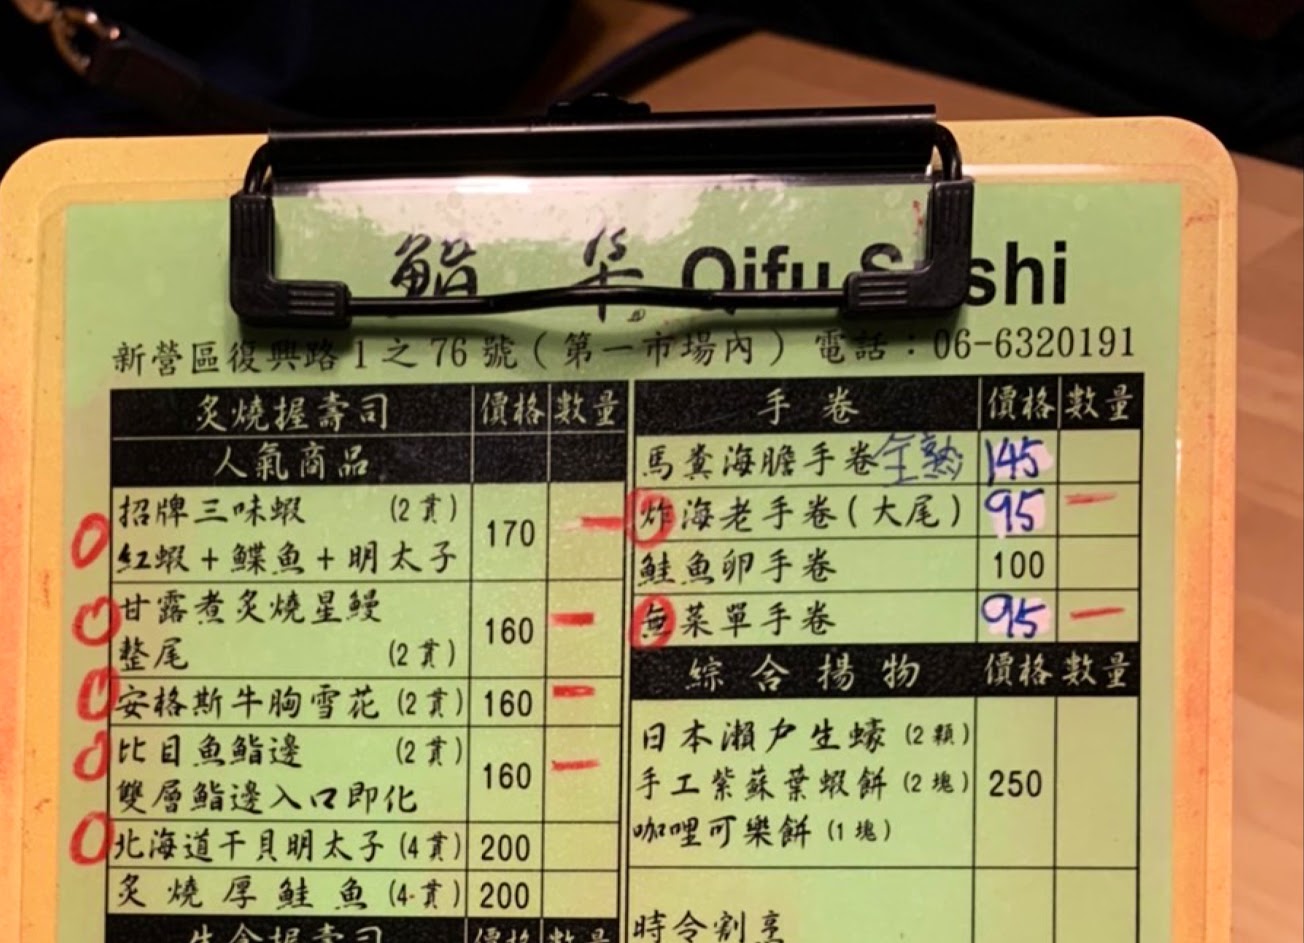 鮨 年 Qifu Sushi
新營區復興路1之76號(第一市場內) 電話:06-6320191
炙燒握壽司 價格 數量
人氣商品
招牌三味蝦 (2貫)
紅蝦+鰈魚+明太子 170 一
甘露煮炙燒星鰻
整尾 (2貫) 160 一
安格斯牛胸雪花(2貫) 160 一
比目魚鮨邊 (2貫)
雙層鮨邊入口即化 160 一
北海道干貝明太子(4貫) 200
炙燒厚鮭魚(4貫) 200
生食握壽司 價格 數量
手卷 價格 數量
馬糞海膽手卷 全熟 145
炸海老手卷(大尾) 95 一
鮭魚卵手卷 100
無菜單手卷 95 一
綜合揚物 價格 數量
日本瀨戶生蠔(2顆)
手工紫蘇葉蝦餅(2塊) 250
咖哩可樂餅(1塊)
時令割烹